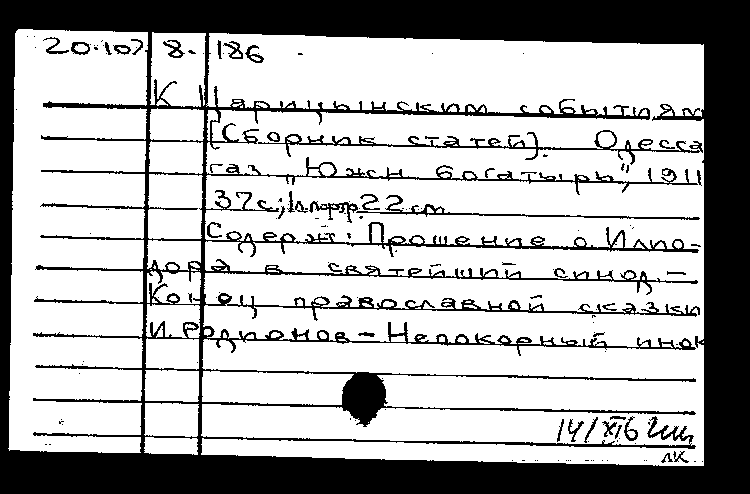 20.107. 8. 186
К Царицынским событиям
[Сборник статей]. Одесса
газ „Южн богатырь“, 1911
37 с.; 1 л. портр. 22 см
Содерж: Прошение о. Илио-
дора в святейший синод. –
Конец православной сказки
И. Родионов – Непокорный инок
14/XI 6
ЛК